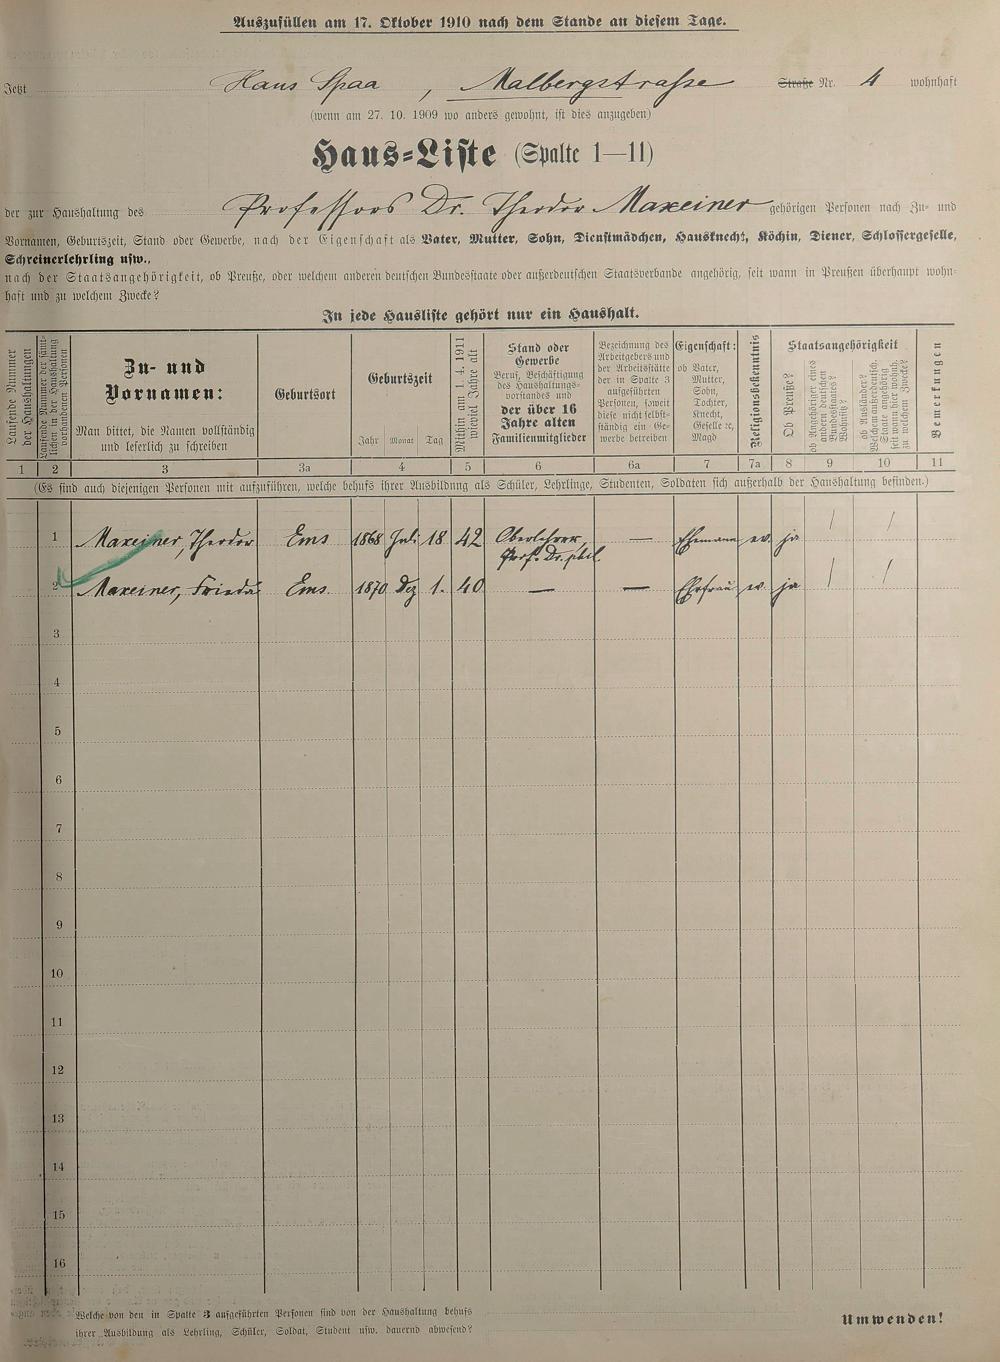 Auszufüllen am 17. Oktober 1910 nach dem Stande an diesem Tage.
Jetzt Haus Spaa, Malbergstrasse Straße Nr. 4 wohnhaft
(wenn am 27. 10. 1909 wo anders gewohnt, ist dies anzugeben)
Haus-Liste (Spalte 1—11)
der zur Haushaltung des Professors Dr. Theodor Maxeiner gehörigen Personen nach Zu- und
Vornamen, Geburtszeit, Stand oder Gewerbe, nach der Eigenschaft als Vater, Mutter, Sohn, Dienstmädchen, Hausknecht, Köchin, Diener, Schlossergeselle,
Schreinerlehrling usw.,
nach der Staatsangehörigkeit, ob Preuße, oder welchem anderen deutschen Bundesstaate oder außerdeutschen Staatsverbande angehörig, seit wann in Preußen überhaupt wohn-
haft und zu welchem Zwecke?
In jede Hausliste gehört nur ein Haushalt.
Laufende Nummer
der Haushaltungen
Laufende Nummer der sämt-
lichen in der Haushaltung
vorhandenen Personen
Zu- und
Vornamen:
Man bittet, die Namen vollständig
und leserlich zu schreiben
Geburtsort
Geburtszeit
Jahr Monat Tag
Mithin am 1. 4. 1911
wieviel Jahre alt
Stand oder
Gewerbe
Beruf, Beschäftigung
des Haushaltungs-
vorstandes und
der über 16
Jahre alten
Familienmitglieder
Bezeichnung des
Arbeitgebers und
der Arbeitsstätte
der in Spalte 3
aufgeführten
Personen, soweit
diese nicht selbst-
ständig ein Ge-
werbe betreiben
Eigenschaft:
ob Vater,
Mutter,
Sohn,
Tochter,
Knecht,
Geselle ꝛc,
Magd
Religionsbekenntnis
Staatsangehörigkeit
Ob Preuße?
ob Angehöriger eines
andern deutschen
Bundesstaates?
Wohnsitz?
ob Ausländer?
Welchem außerdeutsch.
Staate angehörig
seit wann hier wohnh.
zu welchem Zwecke?
Bemerkungen
1 2 3 3a 4 5 6 6a 7 7a 8 9 10 11
(Es sind auch diejenigen Personen mit aufzuführen, welche behufs ihrer Ausbildung als Schüler, Lehrlinge, Studenten, Soldaten sich außerhalb der Haushaltung befinden.)
1 Maxeiner, Theodor Ems 1868 Juli 18 42 Oberlehrer, — Ehemann ev. ja / /
Prof. Dr. phil.
2 Maxeiner, Frieda Ems 1870 Dez 1. 40 — — Ehefrau ev. ja / /
3
4
5
6
7
8
9
10
11
12
13
14
15
16
Welche von den in Spalte 3 aufgeführten Personen sind von der Haushaltung behufs
ihrer Ausbildung als Lehrling, Schüler, Soldat, Student usw. dauernd abwesend?
Umwenden!